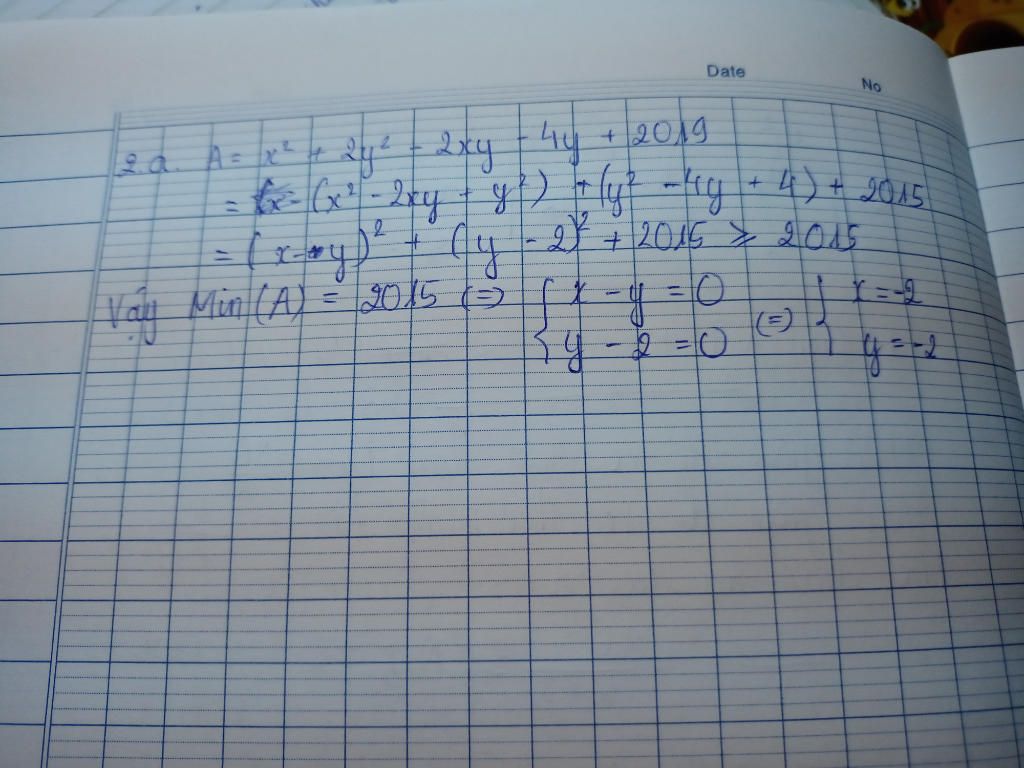 Date
No
2.a. A = x² + 2y² - 2xy - 4y + 2019
= (x² - 2xy + y²) + (y² - 4y + 4) + 2015
= (x - y)² + (y - 2)² + 2015 ≥ 2015
Vậy Min(A) = 2015 (=) { x - y = 0 (=) { x = -2
y - 2 = 0 y = -2